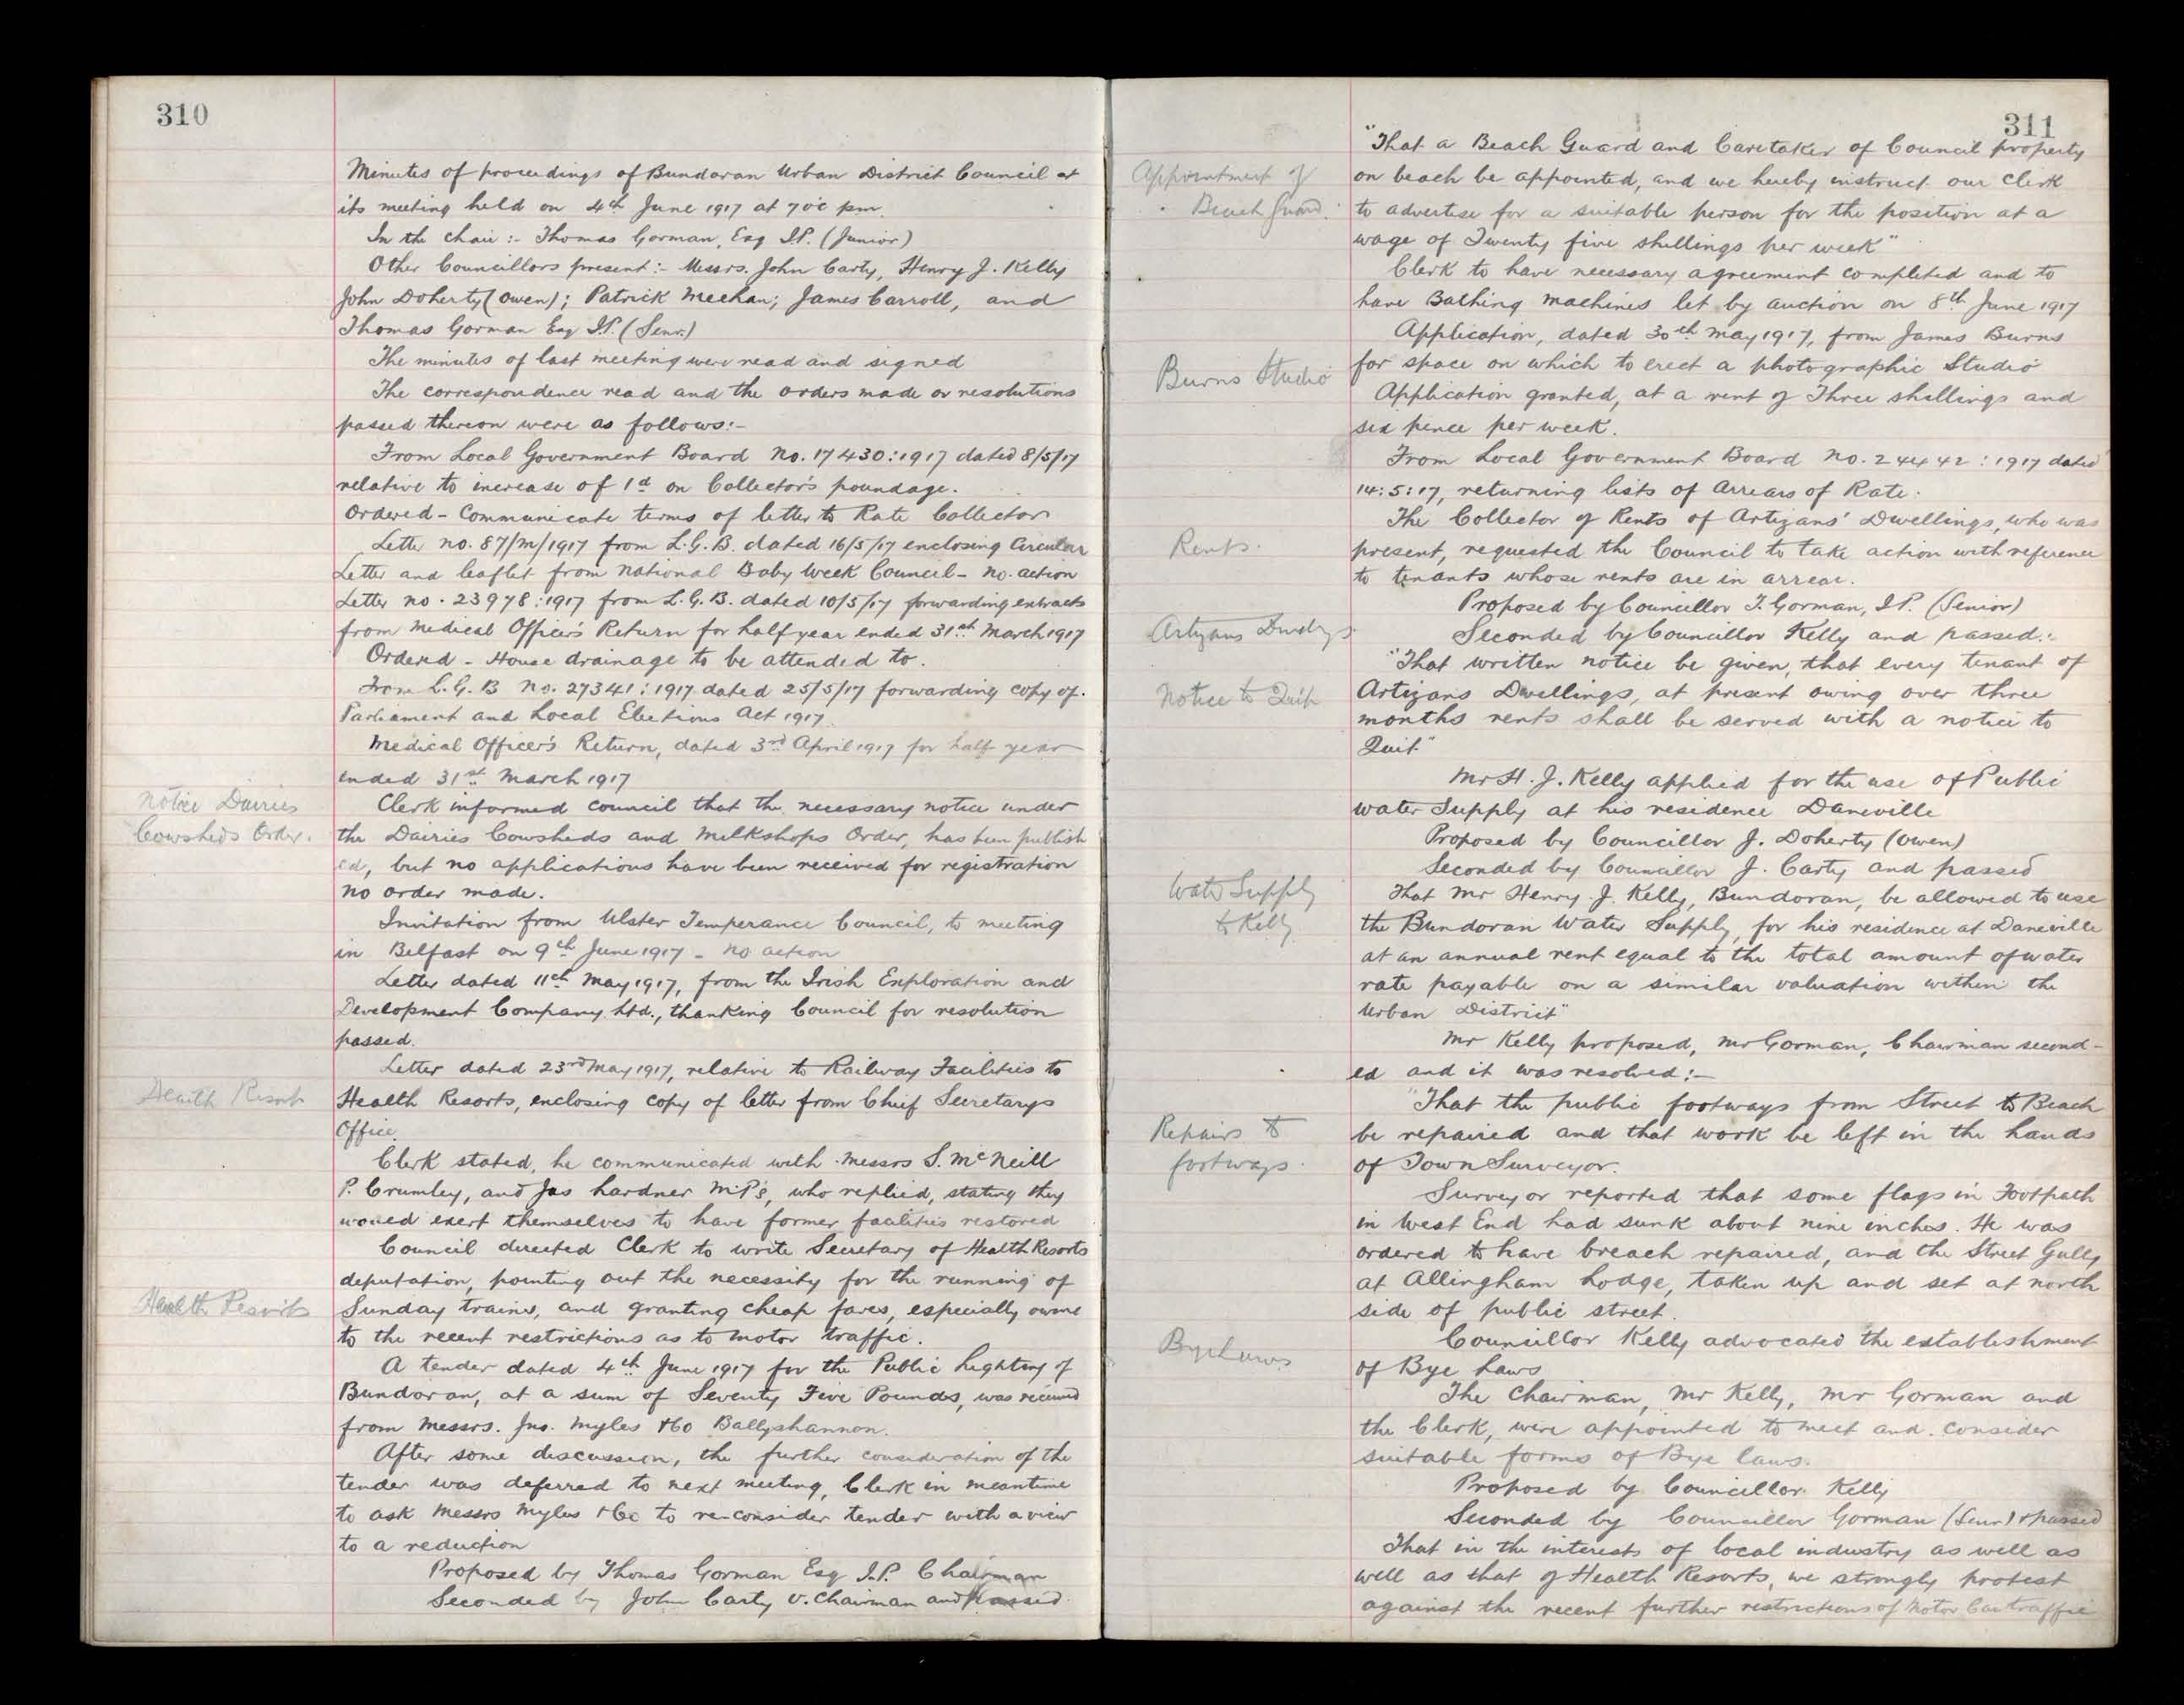 310
Minutes of proceedings of Bundoran Urban District Council at
its meeting held on 4th June 1917 at 7 o'c pm.
In the chair :- Thomas Gorman, Esq J.P. (Junior)
Other Councillors present :- Messrs. John Carty, Henry J. Kelly
John Doherty (Owen); Patrick Meehan; James Carroll, and
Thomas Gorman Esq J.P. (Senr.)
The minutes of last meeting were read and signed
The correspondence read and the orders made or resolutions
passed thereon were as follows:-
From Local Government Board No. 17430:1917 dated 8/5/17
relative to increase of 1d on Collector's poundage.
Ordered - Communicate terms of letter to Rate Collector
Letter no. 87/M/1917 from L.G.B. dated 16/5/17 enclosing Circular
Letter and leaflet from National Baby Week Council - no. action
Letter no. 23978:1917 from L.G.B. dated 10/5/17 forwarding extracts
from Medical Officer's Return for half year ended 31st March 1917
Ordered - House drainage to be attended to.
From L.G.B No. 27341:1917 dated 25/5/17 forwarding copy of.
Parliament and Local Elections Act 1917.
Medical Officer's Return, dated 3rd April 1917 for half year
ended 31st March 1917
Notice Dairies
Cowsheds Order.
Clerk informed council that the necessary notice under
the Dairies Cowsheds and Milkshops Order, has been publish
ed, but no applications have been received for registration
no order made.
Invitation from Ulster Temperance Council, to meeting
in Belfast on 9th June 1917 - no action
Letter dated 11th May 1917, from the Irish Exploration and
Development Company Ltd., thanking Council for resolution
passed.
Health Resort
Letter dated 23rd May 1917, relative to Railway Facilities to
Health Resorts, enclosing copy of letter from Chief Secretarys
Office.
Clerk stated, he communicated with Messrs S. McNeill
P. Crumley, and Jas Lardner M.P's, who replied, stating they
would exert themselves to have former facilities restored
Council directed Clerk to write Secretary of Health Resorts
Health Resorts
deputation, pointing out the necessity for the running of
Sunday trains, and granting cheap fares, especially owing
to the recent restrictions as to motor traffic.
A tender dated 4th June 1917 for the Public Lighting of
Bundoran, at a sum of Seventy Five Pounds, was received
from Messrs. Jno. Myles & Co Ballyshannon.
After some discussion, the further consideration of the
tender was deferred to next meeting, Clerk in meantime
to ask Messrs Myles & Co to re-consider tender with a view
to a reduction
Proposed by Thomas Gorman Esq J.P. Chairman
Seconded by John Carty V. Chairman and passed.
311
Appointment of
Beach Guard.
"That a Beach Guard and Caretaker of Council property
on beach be appointed, and we hereby instruct our Clerk
to advertise for a suitable person for the position at a
wage of Twenty five shillings per week"
Clerk to have necessary agreement completed and to
have Bathing machines let by auction on 8th June 1917
Burns Studio
Application, dated 30th May 1917, from James Burns
for space on which to erect a photographic Studio
Application granted, at a rent of Three shillings and
six pence per week.
From Local Government Board No. 24442:1917 dated
14:5:17, returning lists of Arrears of Rate.
Rents.
The Collector of Rents of Artizans' Dwellings, who was
present, requested the Council to take action with reference
to tenants whose rents are in arrear.
Artizans Dwdgs
Proposed by Councillor T. Gorman, J.P. (Senior)
Seconded by Councillor Kelly and passed:-
Notice to Quit
"That written notice be given, that every tenant of
Artizans Dwellings, at present owing over three
months rents shall be served with a notice to
Quit"
Mr H. J. Kelly applied for the use of Public
water Supply at his residence Daneville
Proposed by Councillor J. Doherty (Owen)
Seconded by Councillor J. Carty and passed
Water Supply
to Kelly
That Mr Henry J. Kelly, Bundoran, be allowed to use
the Bundoran Water Supply, for his residence at Daneville
at an annual rent equal to the total amount of water
rate payable on a similar valuation within the
Urban District"
Mr Kelly proposed, Mr Gorman, Chairman second-
ed and it was resolved:-
Repairs to
footways.
"That the public footways from Street to Beach
be repaired and that work be left in the hands
of Town Surveyor.
Surveyor reported that some flags in Footpath
in West End had sunk about nine inches. He was
ordered to have breach repaired, and the Street Gully
at Allingham Lodge, taken up and set at north
side of public street.
Bye Laws
Councillor Kelly advocated the establishment
of Bye Laws
The Chairman, Mr Kelly, Mr Gorman and
the Clerk, were appointed to meet and consider
suitable forms of Bye laws.
Proposed by Councillor Kelly
Seconded by Councillor Gorman (Senr) & passed
That in the interests of local industry as well as
well as that of Health Resorts, we strongly protest
against the recent further restrictions of Motor Car traffic